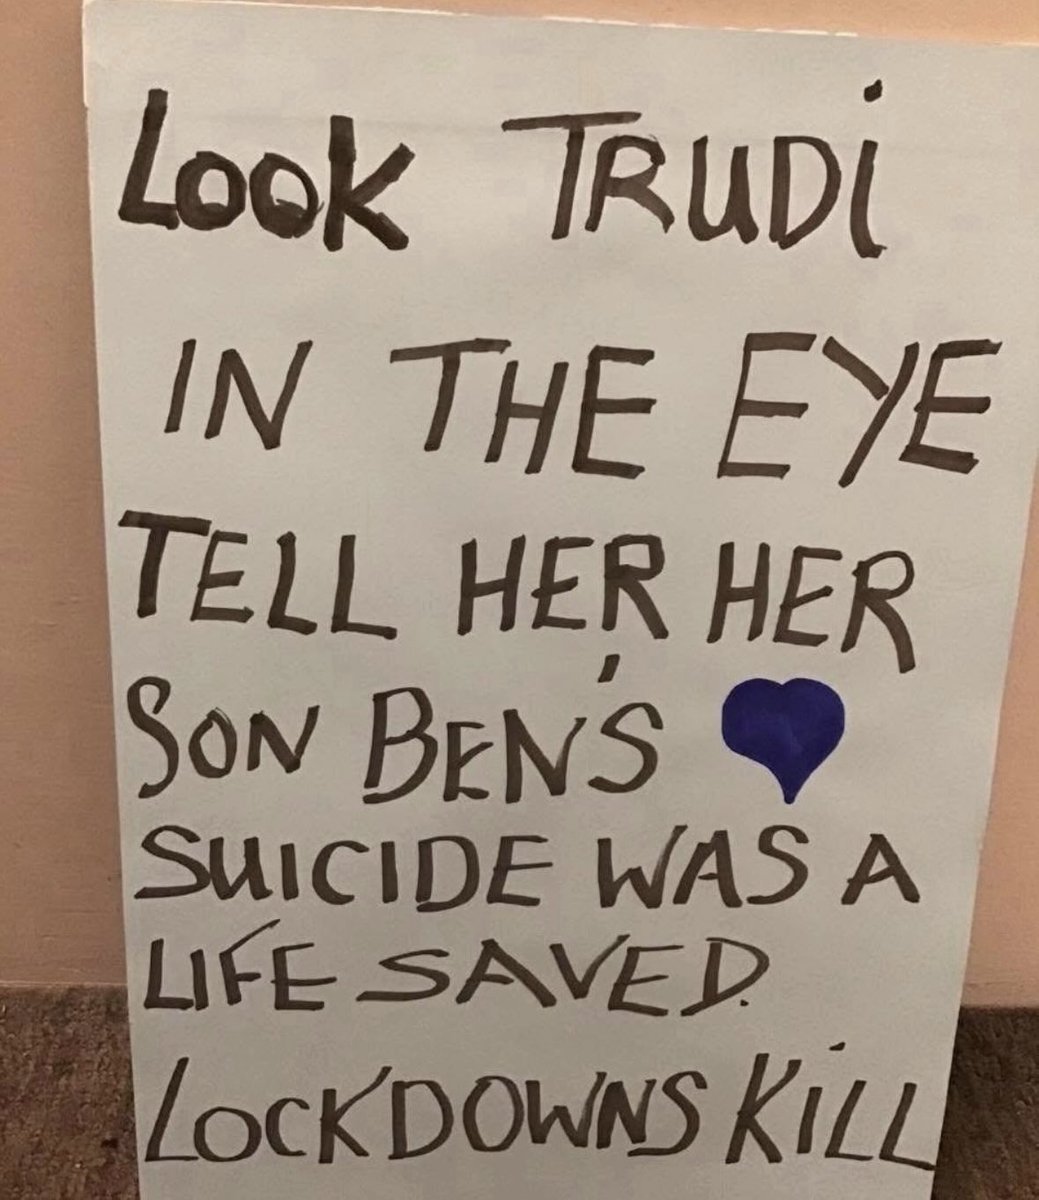 LOOK TRUDi
IN THE EYE
TELL HER HER
SON BEN'S
SUICIDE WAS A
LIFE SAVED.
LOCKDOWNS KiLL